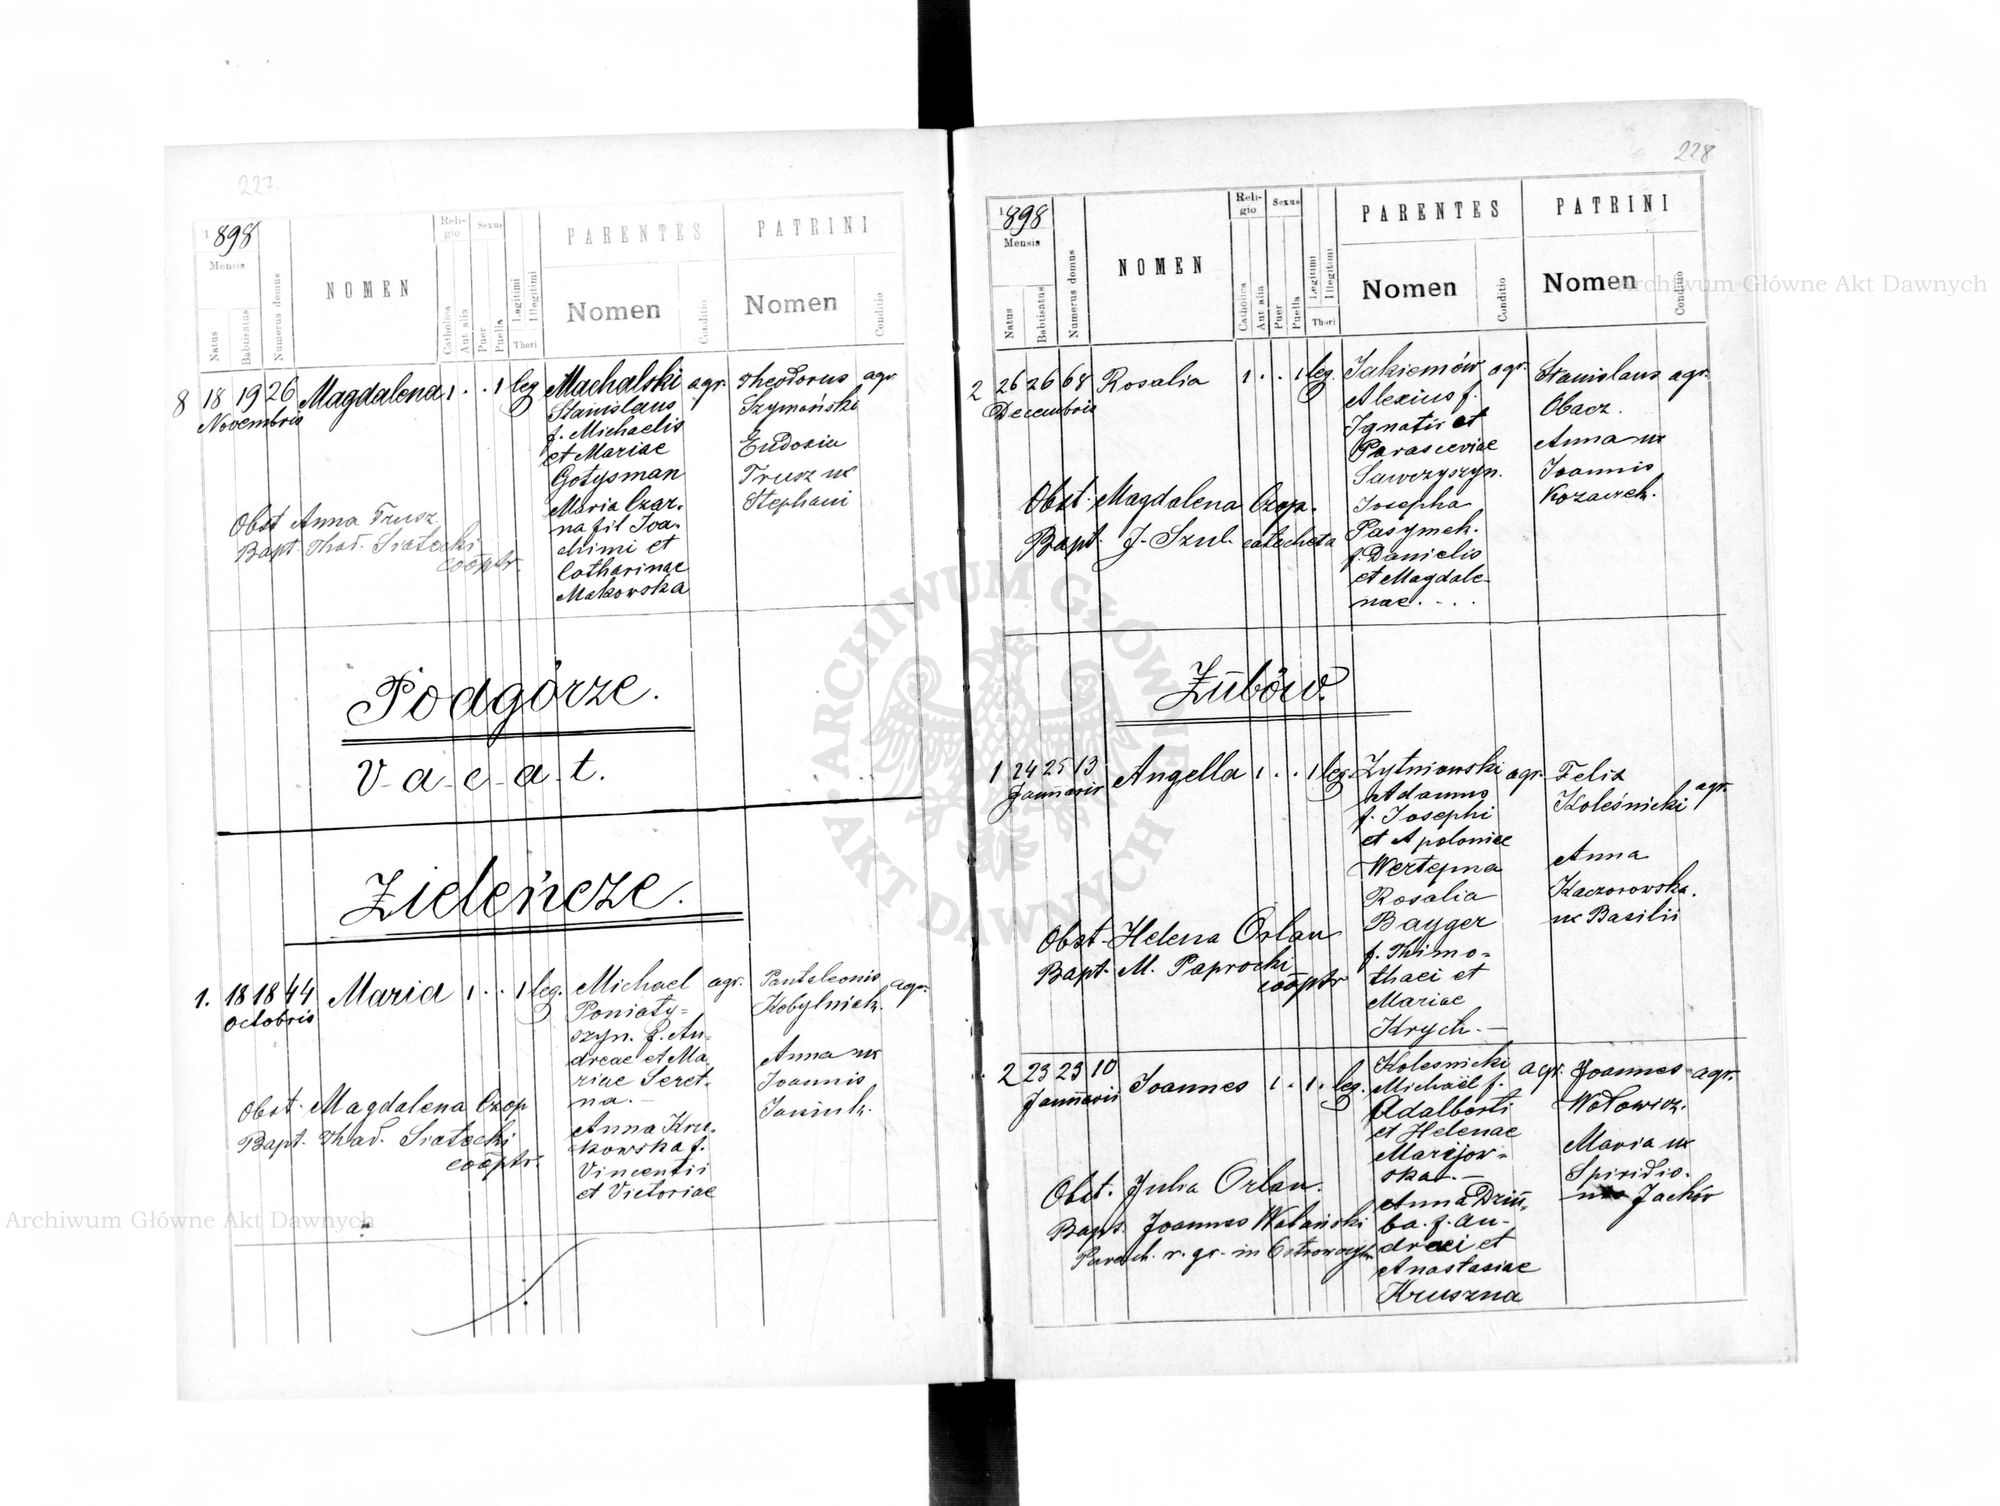 227.
1898
Mensis
Natus
Babtisatus
Numerus domus
NOMEN
Religio
Catholica
Aut alia
Sexus
Puer
Puella
Legitimi
Illegitimi
Thori
PARENTES
Nomen
Conditio
PATRINI
Nomen
Conditio
8 18 19 26 Magdalena 1 . . 1 leg
Novembris
Machalski agr.
Stanislaus
f. Michaelis
et Mariae
Gotysman
Maria Czar-
na fil Joa-
chimi et
Catharinae
Makowska
Theodorus agr
Szymański
Eudoxia
Trusz ux
Stephani
Obst Anna Trusz
Bapt. Thad. Siatecki
cooptr.
Podgórze.
V-a-c-a-t.
Zieleńcze.
1. 18 18 44 Maria 1 . . 1 leg.
Octobris
Michael agr.
Poniaty-
szyn. f. An-
dreae et Ma-
riae Seret-
na.-
Anna Kru-
kowska f.
Vincentii
et Victoriae
Panteleonis agr.
Kobylniak.
Anna ux
Joannis
Obst. Magdalena Czop
Bapt. Thad. Siatecki
cooptr.
228
1898
Mensis
Natus
Babtisatus
Numerus domus
NOMEN
Religio
Catholica
Aut alia
Sexus
Puer
Puella
Legitimi
Illegitimi
Thori
PARENTES
Nomen
Conditio
PATRINI
Nomen
Conditio
2 26 26 68 Rosalia 1 . . 1 leg.
Decembris
Jakiemów agr.
Alexius f.
Ignatii et
Parasceviae
Sawczyszyn.
Josepha
Pasymek.
f. Danielis
et Magdale-
nae. . . .
Stanislaus agr.
Obacz.
Anna ux
Joannis
Kozaczek.
Obst. Magdalena Czop.
Bapt. J. Szul. catecheta
Zubów.
1 24 25 13 Angella 1 . . 1 leg.
Januarii
Zytniowski agr.
Adamus
f. Josephi
et Apoloniae
Wertepna
Rosalia
Bayger
f. Thimo-
thaei et
Mariae
Krych.-
Felix
Koleśnicki agr.
Anna
Kaczorowska.
ux Basilii
Obst. Helena Orlan
Bapt. M. Paprocki
cooptr
2 23 23 10 Joannes 1 . 1 . leg.
Januarii
Kolesnicki agr.
Michaël f.
Adalberti
et Helenae
Marijow-
ska.-
Anna Dziu-
ba. f. An-
draei et
Anastasiae
Kruszna
Joannes agr.
Wołowicz.
Maria ux
Spiridio-
nis Jachów
Obst. Julia Orlan.
Bapt. Joannes Wołański
Paroch. r. gr. in Ostrowczyk
Archiwum Główne Akt Dawnych
Archiwum Główne Akt Dawnych
ARCHIWUM GŁÓWNE AKT DAWNYCH